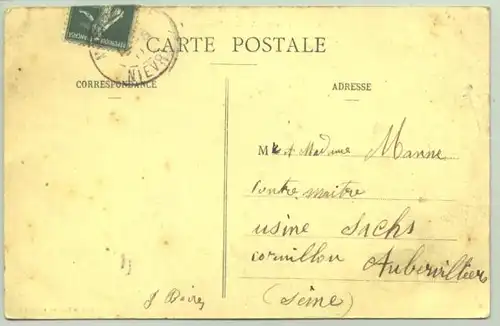 CARTE POSTALE
NIÈVRE
CORRESPONDANCE
ADRESSE
Mr et Madame Manne
Contre maitre
usine Sachs
cornillon Aubervillier
(Seine)